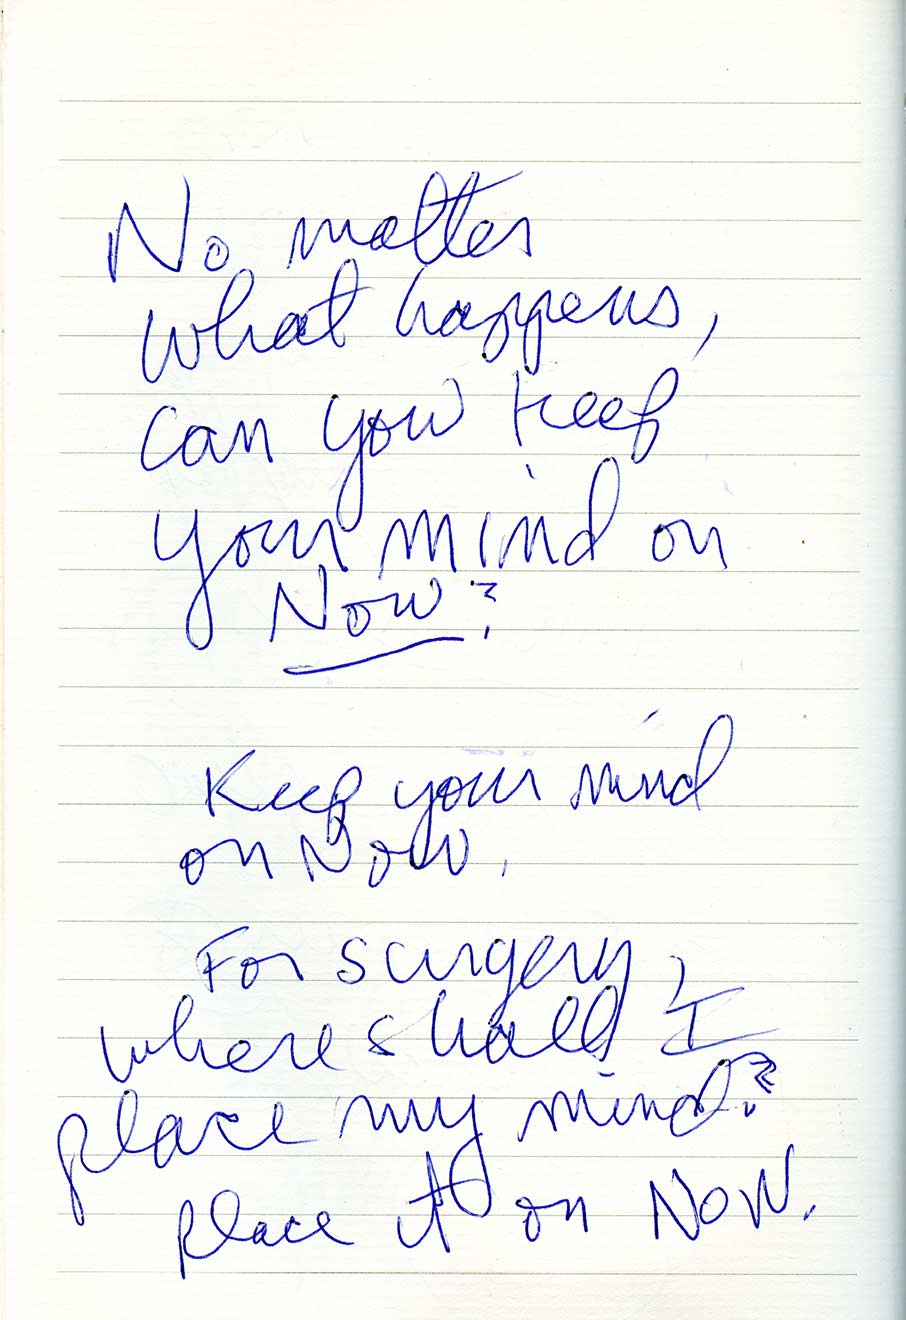 No matter
what happens,
can you keep
your mind on
Now?
Keep your mind
on Now.
For surgery,
where shall I
place my mind?
Place it on NOW.